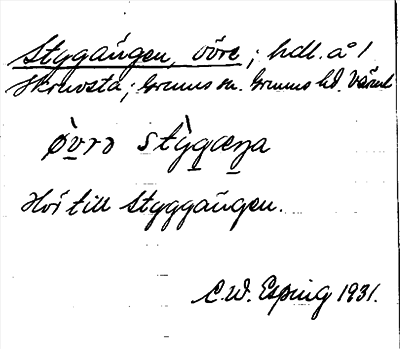 Styggängen, övre; hdl. å 1
Skruvsta; Grums sn. Grums hd. Värml
òvrə stỳgæŋa
Hör till Styggängen.
C.W. Esping 1931.